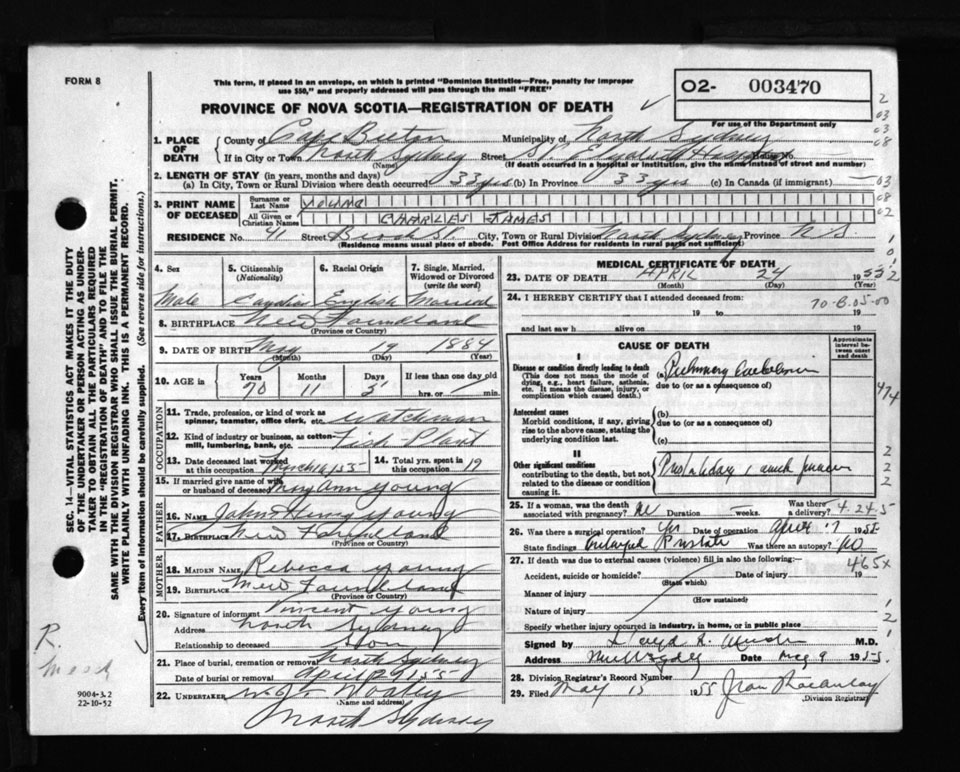 FORM 8
This form, if placed in an envelope, on which is printed "Dominion Statistics—Free, penalty for improper
use $50," and properly addressed will pass through the mail "FREE"
PROVINCE OF NOVA SCOTIA—REGISTRATION OF DEATH
O2- 003470
For use of the Department only
1. PLACE OF DEATH County of Cape Breton Municipality of North Sydney
If in City or Town North Sydney (Name) Street St. Elizabeth Hospital House No.
(If death occurred in a hospital or institution, give the name instead of street and number)
2. LENGTH OF STAY (in years, months and days)
(a) In City, Town or Rural Division where death occurred 33 yrs (b) In Province 33 yrs (c) In Canada (if immigrant)
3. PRINT NAME OF DECEASED Surname or Last Name YOUNG
All Given or Christian Names CHARLES JAMES
RESIDENCE No. 41 Street City, Town or Rural Division North Sydney Province N.S.
(Residence means usual place of abode. Post Office Address for residents in rural parts not sufficient)
4. Sex Male
5. Citizenship (Nationality) Canadian
6. Racial Origin English
7. Single, Married, Widowed or Divorced (write the word) Married
8. BIRTHPLACE New Foundland
(Province or Country)
9. DATE OF BIRTH May 19 1884
(Month) (Day) (Year)
10. AGE in Years 70 Months 11 Days 5 If less than one day old
hrs. or min.
OCCUPATION
11. Trade, profession, or kind of work as spinner, teamster, office clerk, etc. Watchman
12. Kind of industry or business, as cotton-mill, lumbering, bank, etc. Fish Plant
13. Date deceased last worked at this occupation March 16/55 14. Total yrs. spent in this occupation 19
15. If married give name of wife or husband of deceased Mary Ann Young
FATHER
16. NAME John Henry Young
17. BIRTHPLACE New Foundland
(Province or Country)
MOTHER
18. MAIDEN NAME Rebecca Young
19. BIRTHPLACE New Foundland
(Province or Country)
20. Signature of informant Vincent Young
Address North Sydney
Relationship to deceased Son
21. Place of burial, cremation or removal North Sydney
Date of burial or removal April 29 1955
22. UNDERTAKER
(Name and address)
North Sydney
MEDICAL CERTIFICATE OF DEATH
23. DATE OF DEATH APRIL 24 1955
(Month) (Day) (Year)
24. I HEREBY CERTIFY that I attended deceased from:
70-B.05-00
19 to 19
and last saw h alive on 19
CAUSE OF DEATH
Approximate interval between onset and death
I
Disease or condition directly leading to death
(This does not mean the mode of dying, e.g., heart failure, asthenia, etc. It means the disease, injury, or complication which caused death.)
(a) Pulmonary Embolism
due to (or as a consequence of)
Antecedent causes
Morbid conditions, if any, giving rise to the above cause, stating the underlying condition last.
(b)
due to (or as a consequence of)
(c)
II
Other significant conditions
contributing to the death, but not related to the disease or condition causing it.
25. If a woman, was the death associated with pregnancy? Duration weeks. Was there a delivery? 4.24.5
26. Was there a surgical operation? Date of operation April 19
State findings Enlarged Prostate Was there an autopsy? no
27. If death was due to external causes (violence) fill in also the following:—
465x
Accident, suicide or homicide? (State which) Date of injury 19
Manner of injury
(How sustained)
Nature of injury
Specify whether injury occurred in industry, in home, or in public place
Signed by M.D.
Address Date May 9 1955
28. Division Registrar's Record Number
29. Filed May 13 1955 Jean
(Division Registrar)
SEC. 14—VITAL STATISTICS ACT MAKES IT THE DUTY
OF THE UNDERTAKER OR PERSON ACTING AS UNDER-
TAKER TO OBTAIN ALL THE PARTICULARS REQUIRED
IN THE "REGISTRATION OF DEATH" AND TO FILE THE
SAME WITH THE DIVISION REGISTRAR WHO SHALL ISSUE THE BURIAL PERMIT.
WRITE PLAINLY WITH UNFADING INK. THIS IS A PERMANENT RECORD.
Every item of information should be carefully supplied. (See reverse side for instructions.)
R.
9004-3.2
22-10-52